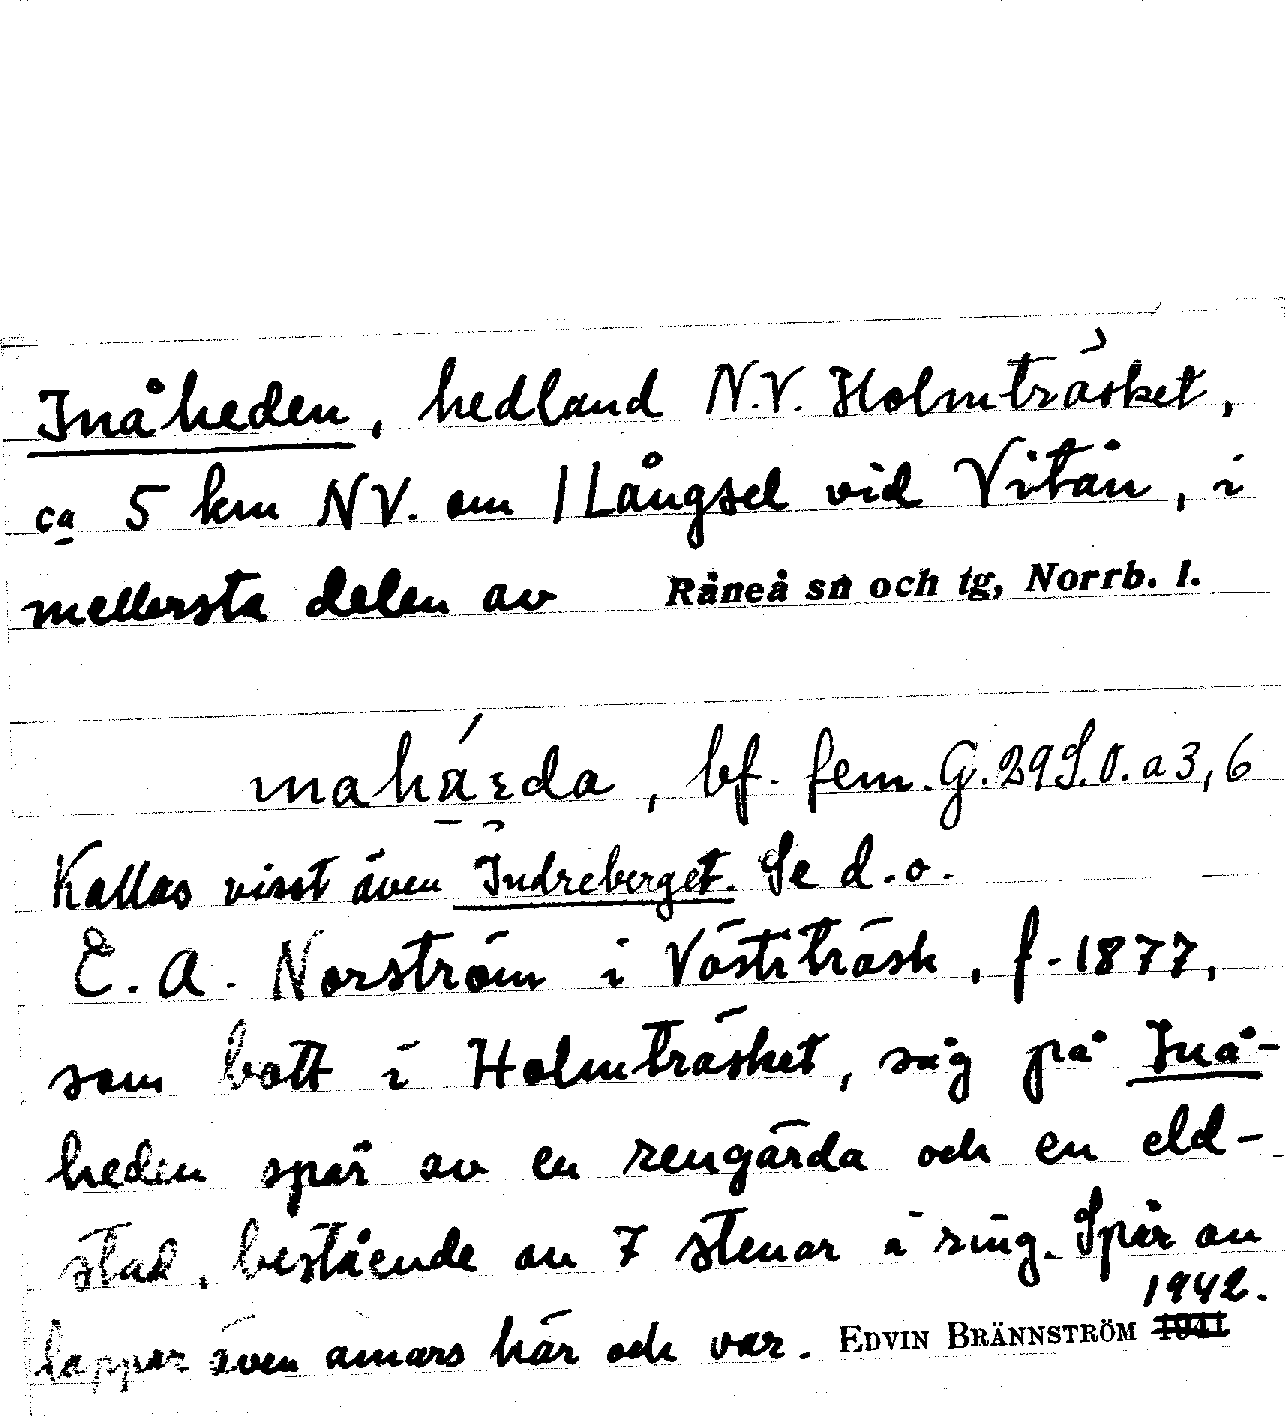 Inåheden, hedland N.V. Holmträsket,
ca 5 km NV. om /Långsel vid Vitån, i
mellersta delen av Råneå sn och tg, Norrb. l.
bf. fem. G. 29 S.O. a 3, 6
Kallas visst även Indreberget. Se d.o.
E. A. Norström i Västiträsk, f. 1877,
som bott i Holmträsket, såg på Inå-
heden spår av en rengärda och en eld-
stad, bestående av 7 stenar i ring. Spår av
lappar även annars här och var. EDVIN BRÄNNSTRÖM 1941 1942.